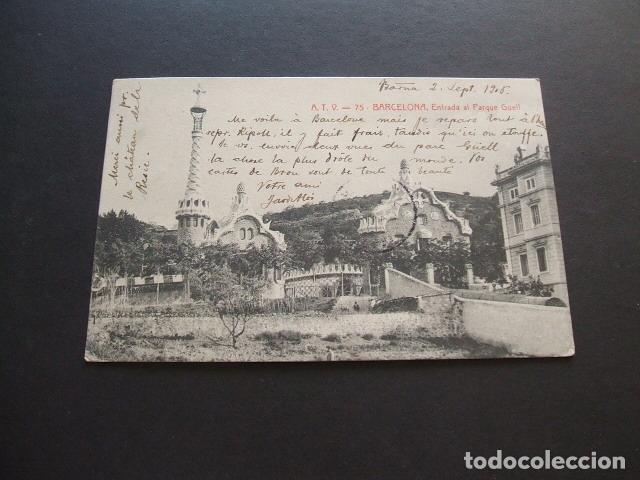 Barna 2. Sept. 1905.
A. T. V. — 75 - BARCELONA, Entrada al Parque Guell
Me voilà à Barcelone mais je repars tout à l'h
repr. Ripoll, il y fait frais, tandis qu'ici on étouffe.
Je vs. envoie deux vues du parc Güell
la chose la plus drôle du monde. Vos
cartes de Brou sont de toute beauté
Votre ami
Merci aussi pr.
le château de la
todocoleccion.net